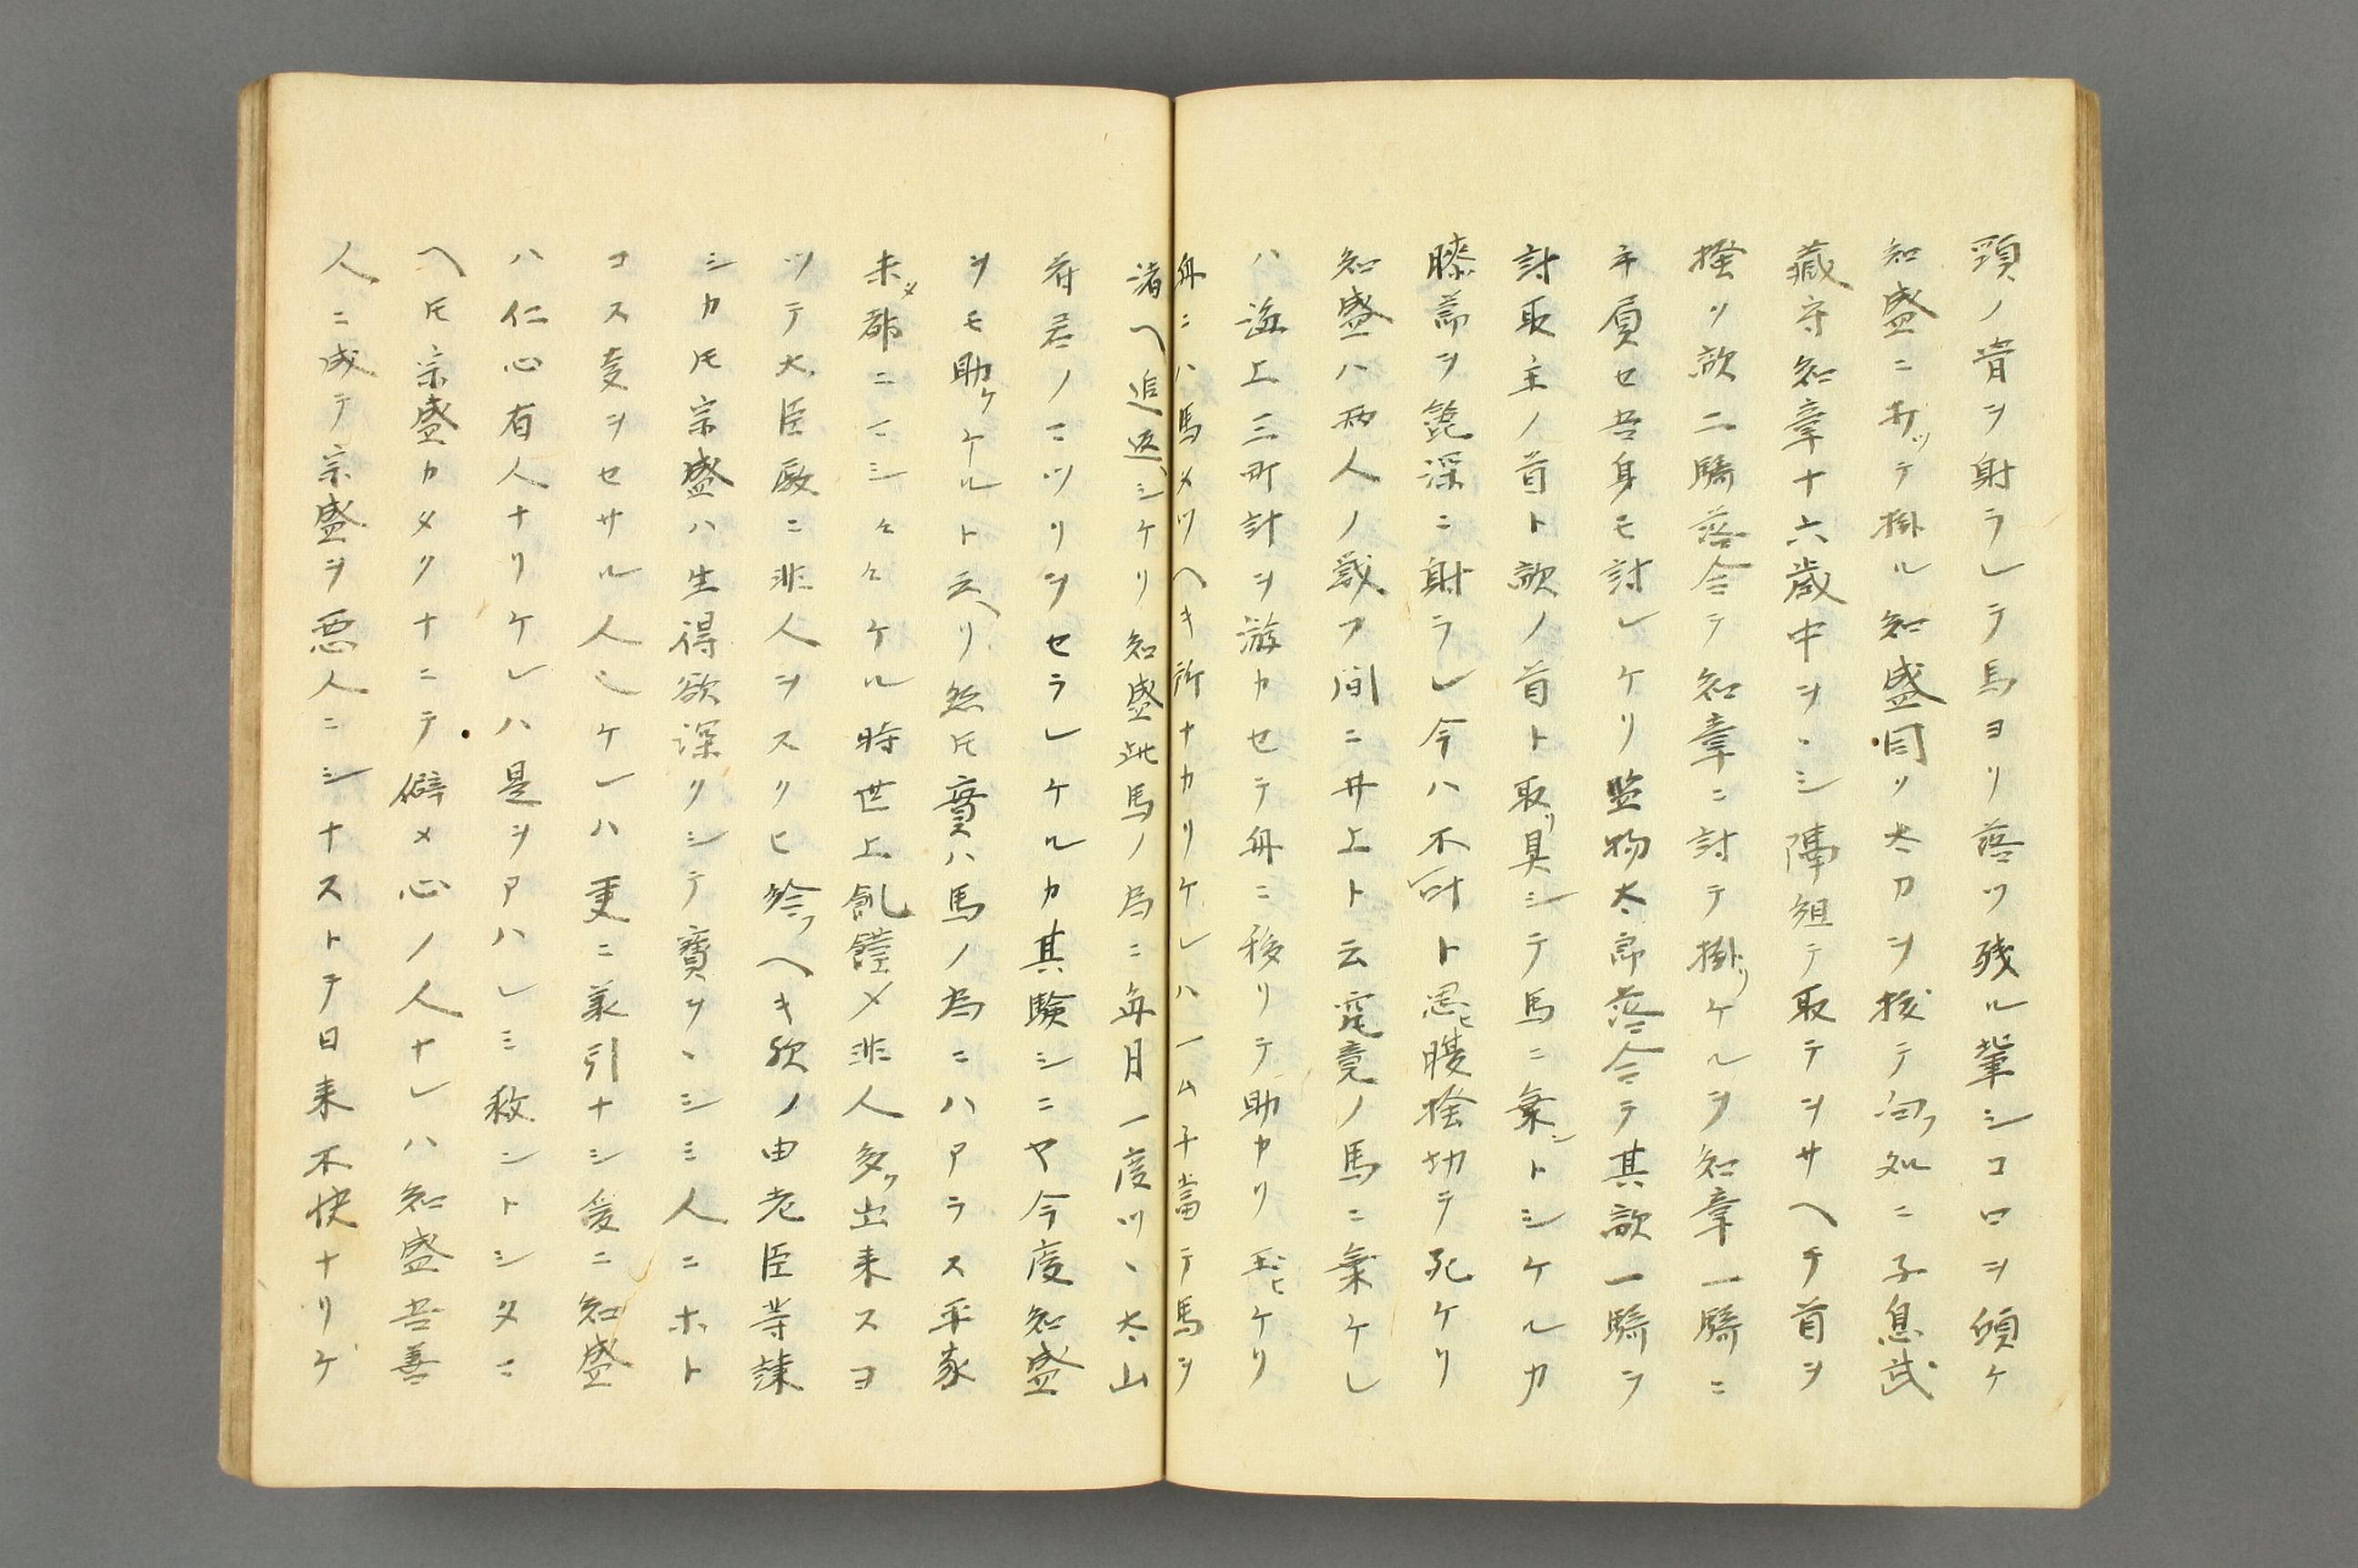 頸ノ骨ヲ射ラレテ馬ヨリ落ツ残ル輩シコロヲ傾ケ
知盛ニ打ッテ掛ル知盛固リ太刀ヲ抜テ向フ処ニ子息武
蔵守知章十六歳中ヲヽシ陣組テ取テヲサヘテ首ヲ
掻リ敵二騎落合テ知章ニ討テ掛リケルヲ知章一騎ニ
手屓セ吾身モ討レケリ監物太郎落合テ其敵一騎ヲ
討取主ノ首ト敵ノ首ト取リ具シテ馬ニ乗ントシケルカ
膝節ヲ箆深ニ射ラレ今ハ不叶ト思ヒ腹捨切テ死ケリ
知盛ハ両人ノ戦フ間ニ井上ト云究竟ノ馬ニ乗ケレ
ハ海上三町計ヲ游カセテ舟ニ移リテ助カリ玉ヒケリ
舟ニハ馬メツヘキ所ナカリケレハ一ムチ當テ馬ヲ
渚ヘ追返シケリ知盛此馬ノ為ニ毎月一度ツヽ太山
府君ノマツリヲセラレケルカ其験シニヤ今度知盛
ヲモ助ケケルト云ヘリ然圧實ハ馬ノ為ニハアラス平家
未メ都ニマシ々々ケル時世上飢饉メ非人多ク出来スヨ
ツテ大臣殿ニ非人ヲスクヒ給フヘキ歟ノ由老臣等諌
シカ圧宗盛ハ生得欲深クシテ寶ヲヽシミ人ニホト
コス支ヲセサル人ノケレハ更ニ承引ナシ爰ニ知盛
ハ仁心有人ナリケレハ是ヲアハレミ救ントシタマ
ヘ圧宗盛カタクナニテ僻メ心ノ人ナレハ知盛吾善
人ニ成テ宗盛ヲ悪人ニシナストテ日来不快ナリケ